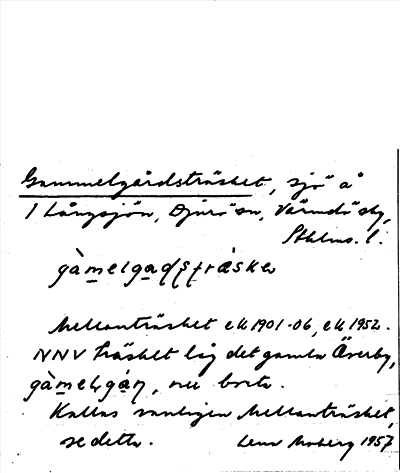 Gammelgårdsträsket, sjö å
1 Långsjön, Djurö sn, Värmdö skg,
Sthlms. l.
gàmelgaɖʂtræ̀sket
Mellanträsket ek 1901-06, ek 1952.
NNV träsket låg det gamla Överby,
, nu borta.
Kallas vanligen Mellanträsket,
se detta. Lena Moberg 1957